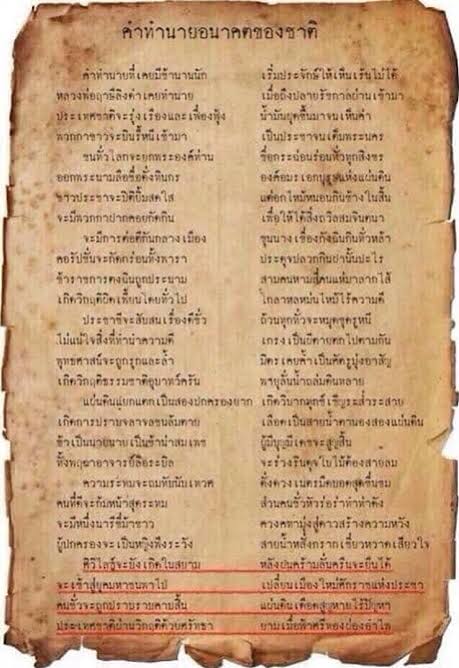 คำทำนายอนาคตของชาติ
คำทำนายที่เคยมีช้านานนัก เริ่มประจักษ์ให้เห็นเร้นไม่ได้
หลวงพ่อฤาษีลิงดำเคยทำนาย เมื่อถึงปลายรัชกาลผ่านเข้ามา
ประเทศชาติจะรุ่งเรืองและเฟื่องฟุ้ง น้ำมันผุดขึ้นมาจนเห็นค่า
พวกกาขาวจะบินรี่หนีเข้ามา เป็นประชาจนเต็มพระนคร
ชนทั่วโลกจะยกพระองค์ท่าน ชื่อกระฉ่อนร่อนทั่วทุกสิงขร
ออกพระนามลือชื่อดั่งทินกร องค์อมรเอกบุรุษแห่งแผ่นดิน
ชาวประชาจะปิติยิ้มสดใส แต่อกไหม้หนอนกินข้างในสิ้น
จะมีพวกกาปากคอยกัดกิน เพื่อให้ได้สิ่งถวิลสมจินตนา
จะมีการต่อตีกันกลางเมือง ขุนนางเขื่องกังฉินกินทั่วหล้า
คอรัปชั่นจะกัดกร่อนทั้งพารา ประดุจปลวกกินฝานั้นปะไร
ข้าราชการตงฉินถูกประณาม สามคนหามสี่คนแห่มาลากไส้
เกิดวิกฤติผิดเพี้ยนโดยทั่วไป โกลาหลหม่นไหม้ไร้ความดี
ประชาชีจะสับสนเรื่องดีชั่ว ถ้วนทุกทั่วจะหมุดขุดรูหนี
ไม่แน่ใจสิ่งที่ทำนำความดี เกรงเป็นผีตายตกไปตามกัน
พุทธศาสน์จะถูกรุกและล้ำ มิตรเคยค้ำเป็นศัตรูมุ่งอาสัญ
เกิดวิกฤติธรรมชาติอุบาทว์ครัน พายุลั่นน้ำถล่มดินทลาย
แผ่นดินแยกแตกเป็นสองปกครองยาก เกิดวิบากทุกข์เข็ญระส่ำระสาย
เกิดการปราบจลาจลชนล้มตาย เลือดเป็นสายน้ำตานองสองแผ่นดิน
ข้าเป็นนายนายเป็นข้าน่าสมเพช ผู้มีบุญมีเดชจะสูญสิ้น
ทั้งพฤฒาอาจารย์ลือระบิล จะร่วงรินดุจใบไม้ต้องสายลม
ความระทมจะถมทับนับเทวศ ดั่งดวงเนตรมืดบอดสุดขื่นขม
คนที่ดีจะก้มหน้าสุดระทม ส่วนคนชั่วหัวร่อร่าทำท่าดัง
จะมีหนึ่งนารีขี่ม้าขาว ควงคทามุ่งสู่ดาวสร้างความหวัง
ผู้ปกครองจะเป็นหญิงพึงระวัง สายน้ำหลั่งกรากเชี่ยวหวาดเสียวใจ
ศิวิไลซ์จะบังเกิดในสยาม หลังฝนครามลั่นครืนจะยืนได้
จะเข้าสู่ยุคมหาชนพาไป เปลี่ยนเมืองใหม่ศักราชแห่งประชา
คนชั่วจะถูกปราบราบคาบสิ้น แผ่นดินเดือดสูญหายไร้ปัญหา
ประเทศชาติผ่านวิกฤติด้วยศรัทธา ยามเมื่อฟ้าศรีทองผ่องอำไพ